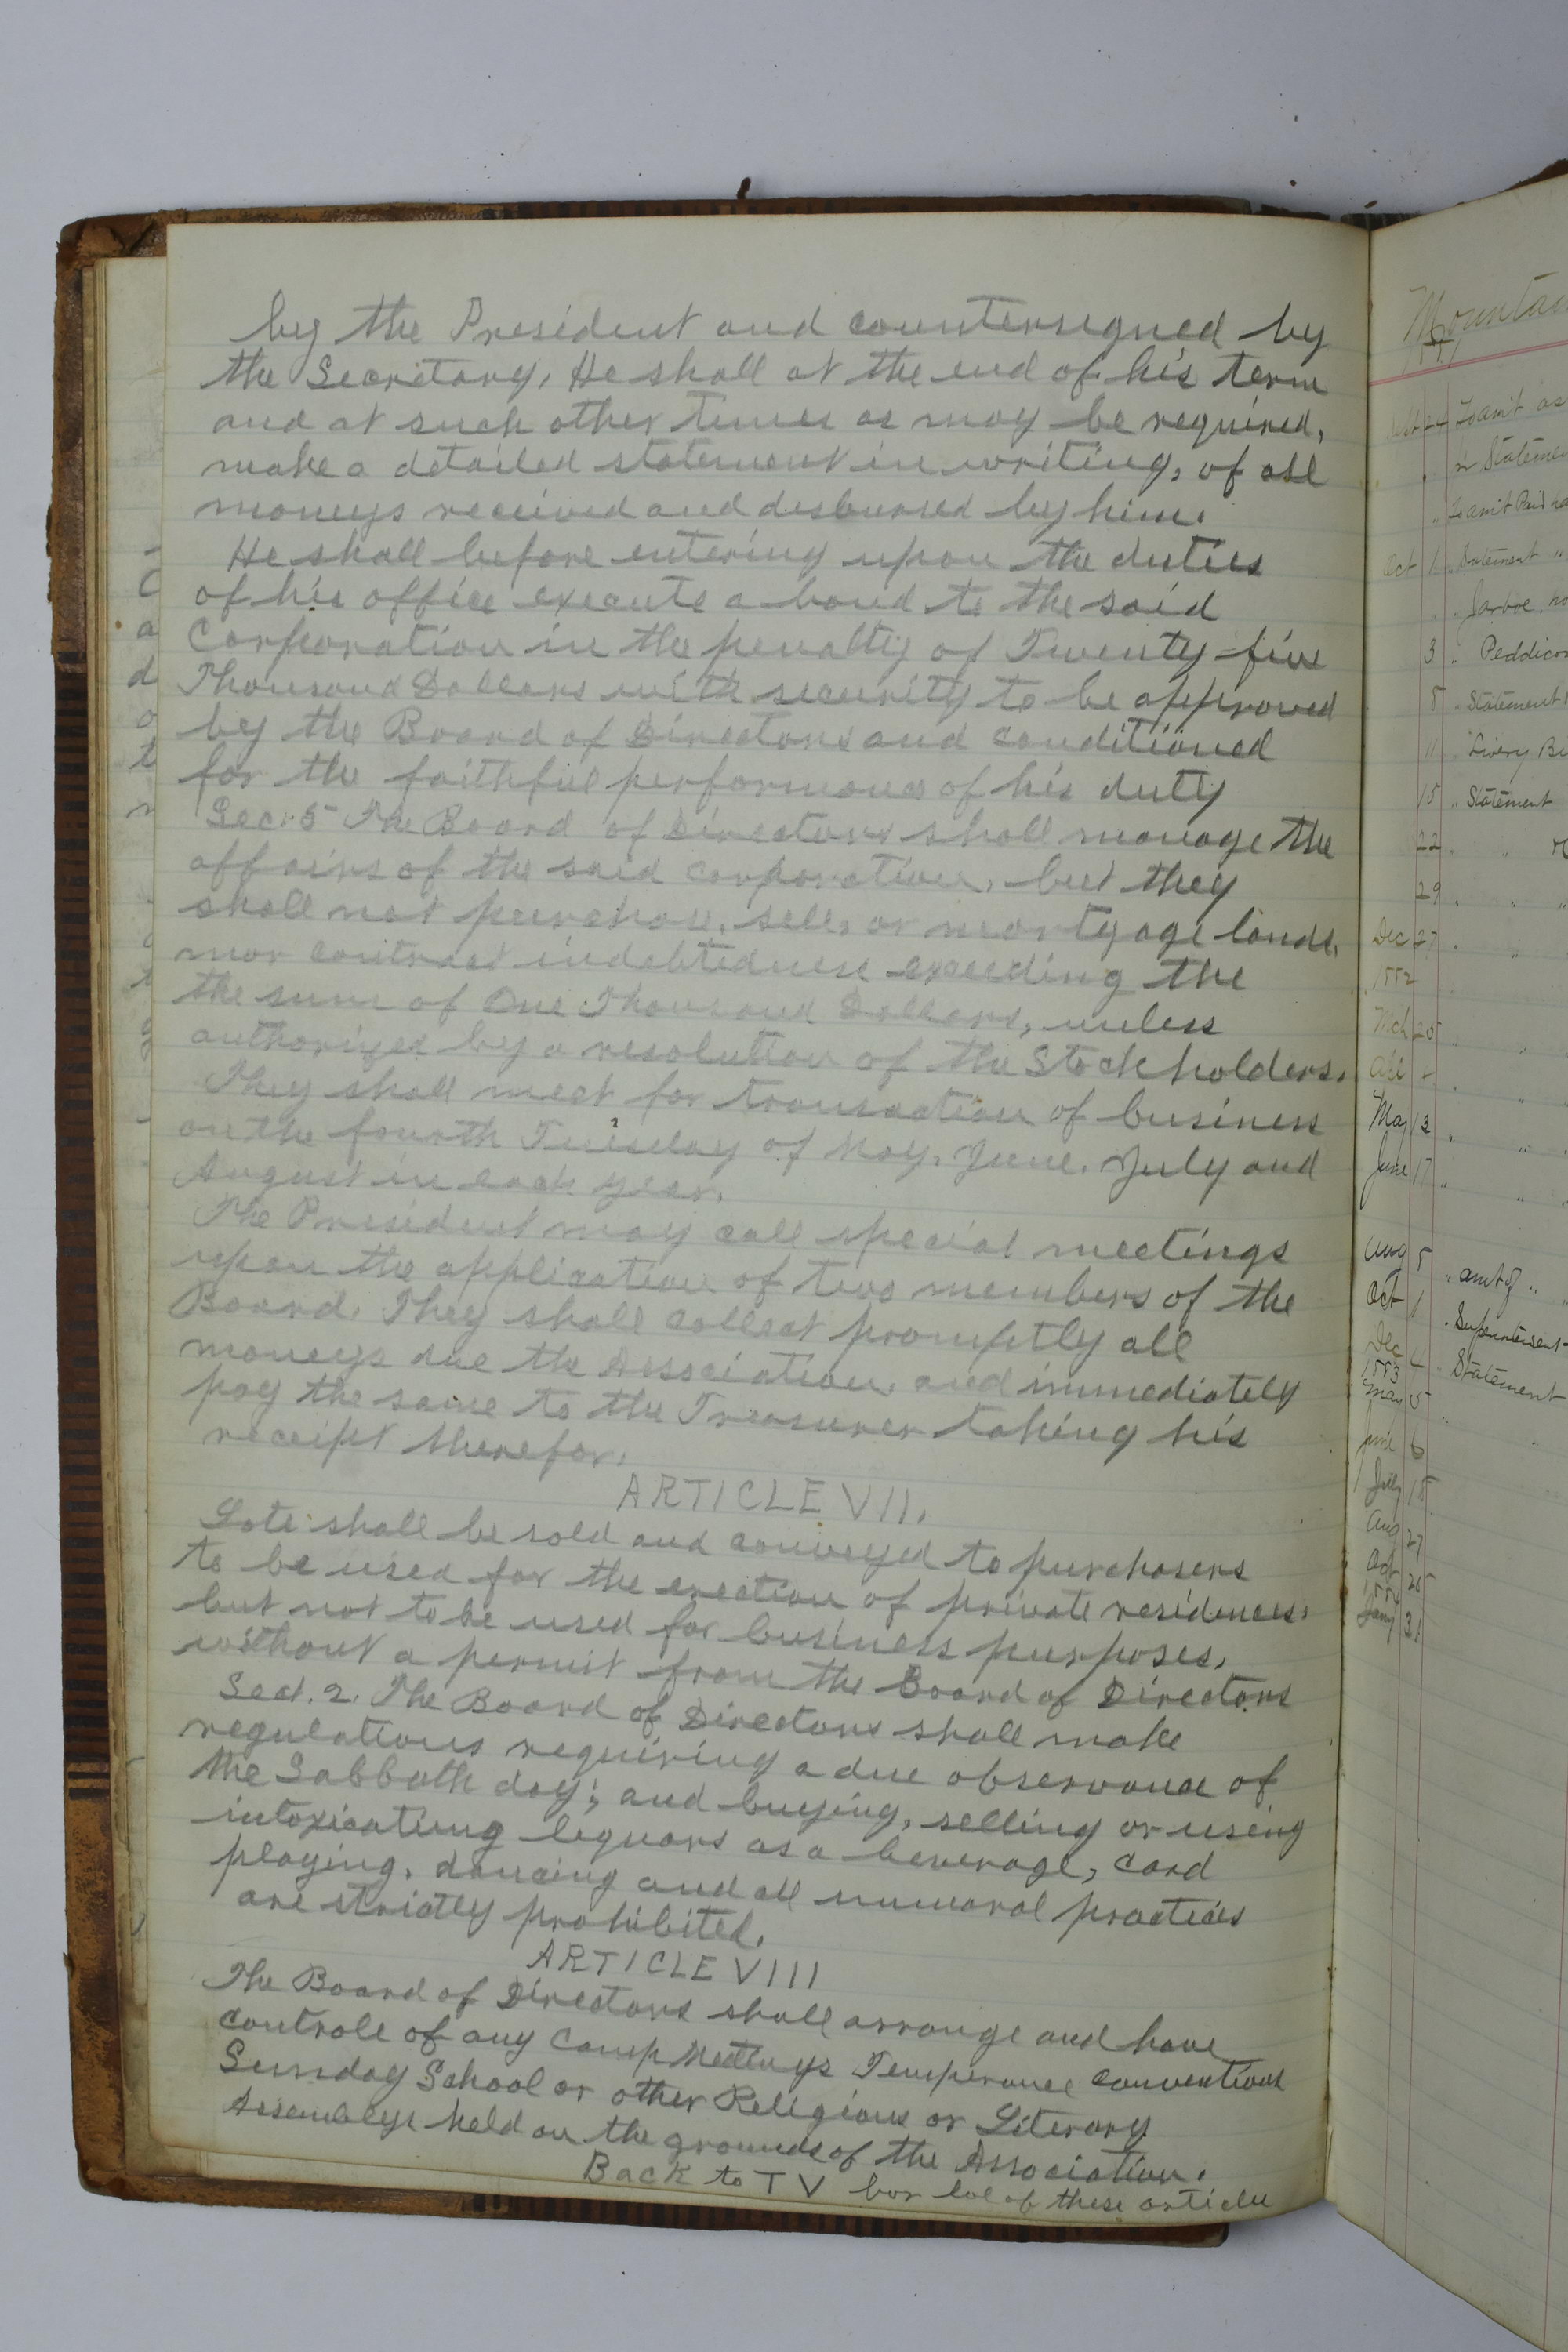 by the President and countersigned by
the Secretary, He shall at the end of his term
and at such other times as may be required,
make a detailed statement in writing, of all
moneys received and disbursed by him.
He shall before entering upon the duties
of his office execute a bond to the said
Corporation in the penalty of Twenty-five
Thousand Dollars with security to be approved
by the Board of Directors and conditioned
for the faithful performance of his duty
Sec. 5 The Board of Directors shall manage the
affairs of the said corporation, but they
shall not purchase, sell, or mortgage lands,
nor contract indebtedness exceeding the
the sum of One Thousand Dollars, unless
authorized by a resolution of the Stockholders.
They shall meet for transaction of business
on the fourth Tuesday of May, June, July and
August in each year.
The President may call special meetings
upon the application of two members of the
Board. They shall collect promptly all
moneys due the Association, and immediately
pay the same to the Treasurer taking his
receipt therefor.
ARTICLE VII.
Lots shall be sold and conveyed to purchasers
to be used for the erection of private residences,
but not to be used for business purposes,
without a permit from the Board of Directors
Sect. 2. The Board of Directors shall make
regulations requiring a due observance of
the Sabbath day; and buying, selling or using
intoxicating liquors as a beverage, card
playing, dancing and all immoral practices
are strictly prohibited.
ARTICLE VIII
The Board of Directors shall arrange and have
controle of any Camp Meetings Temperance conventions
Sunday School or other Religious or Literary
Assemblys held on the grounds of the Association.
Back to TV of these article
Mountain
24 To amt as
Statemen
To amt Paid
Oct 1 Statement "
Jarboe
3 " Peddicor
8 " Statement
11 " Livery Bi
15 " Statement
22 " "
29 " " "
Dec 27 " "
1882
Mch 20 " "
May 13 " "
June 17 " "
Aug 5 " amt of "
Oct 1 "
Dec 4 " Statement
1883
May 5 "
June 6
July 18
Aug 27
Oct 25
Jany 31